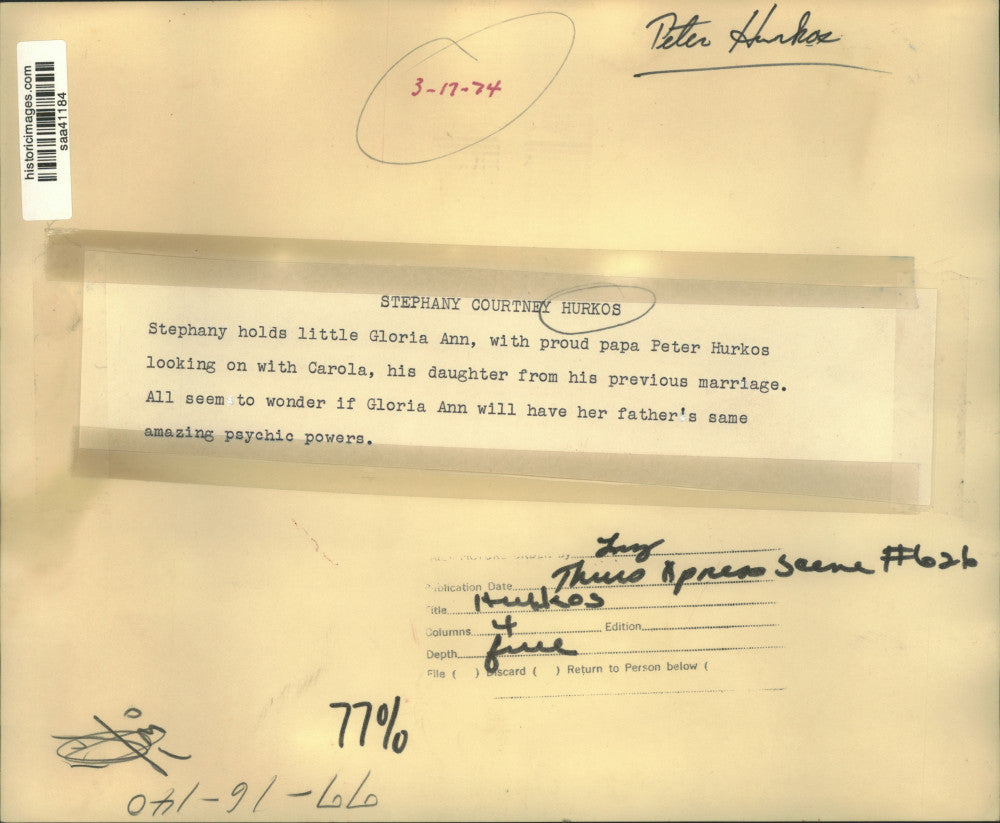 Peter Hurkos
3-17-74
historicimages.com
saa41184
STEPHANY COURTNEY HURKOS
Stephany holds little Gloria Ann, with proud papa Peter Hurkos
looking on with Carola, his daughter from his previous marriage.
All seem to wonder if Gloria Ann will have her father's same
amazing psychic powers.
Publication Date Thurs Xpress Scene #626
Title Hurkos
Columns 4 Edition
Depth fill
File ( ) Discard ( ) Return to Person below (
77%
99-16-140